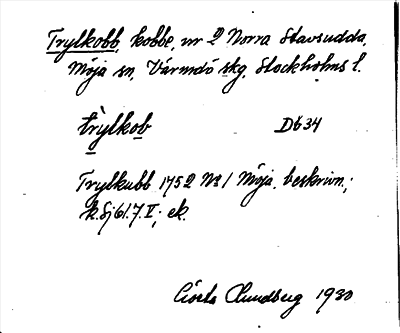 Trylkobb, kobbe, nr 2 Norra Stavsudda,
Möja sn, Värmdö skg, Stockholms l.
trỳlkob Db 34
Trylkubb 1752 Nr 1 Möja, beskrivn.;
k. Sj 61.7.V; ek.
Gösta Lundberg 1930